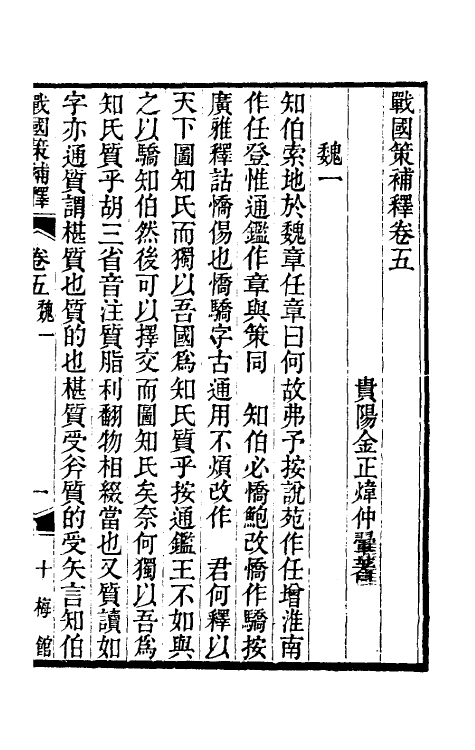 戰國策補釋卷五
貴陽金正煒仲翬著
魏一
知伯索地於魏章任章曰何故弗予按說苑作任增淮南
作任登惟通鑑作章與策同　知伯必憍鮑改憍作驕按
廣雅釋詁憍傷也憍驕字古通用不煩改作　君何釋以
天下圖知氏而獨以吾國爲知氏質乎按通鑑王不如與
之以驕知伯然後可以擇交而圖知氏矣奈何獨以吾爲
知氏質乎胡三省音注質脂利翻物相綴當也又質讀如
字亦通質謂椹質也質的也椹質受斧質的受矢言知伯
戰國策補釋　卷五　魏一　一　十梅館